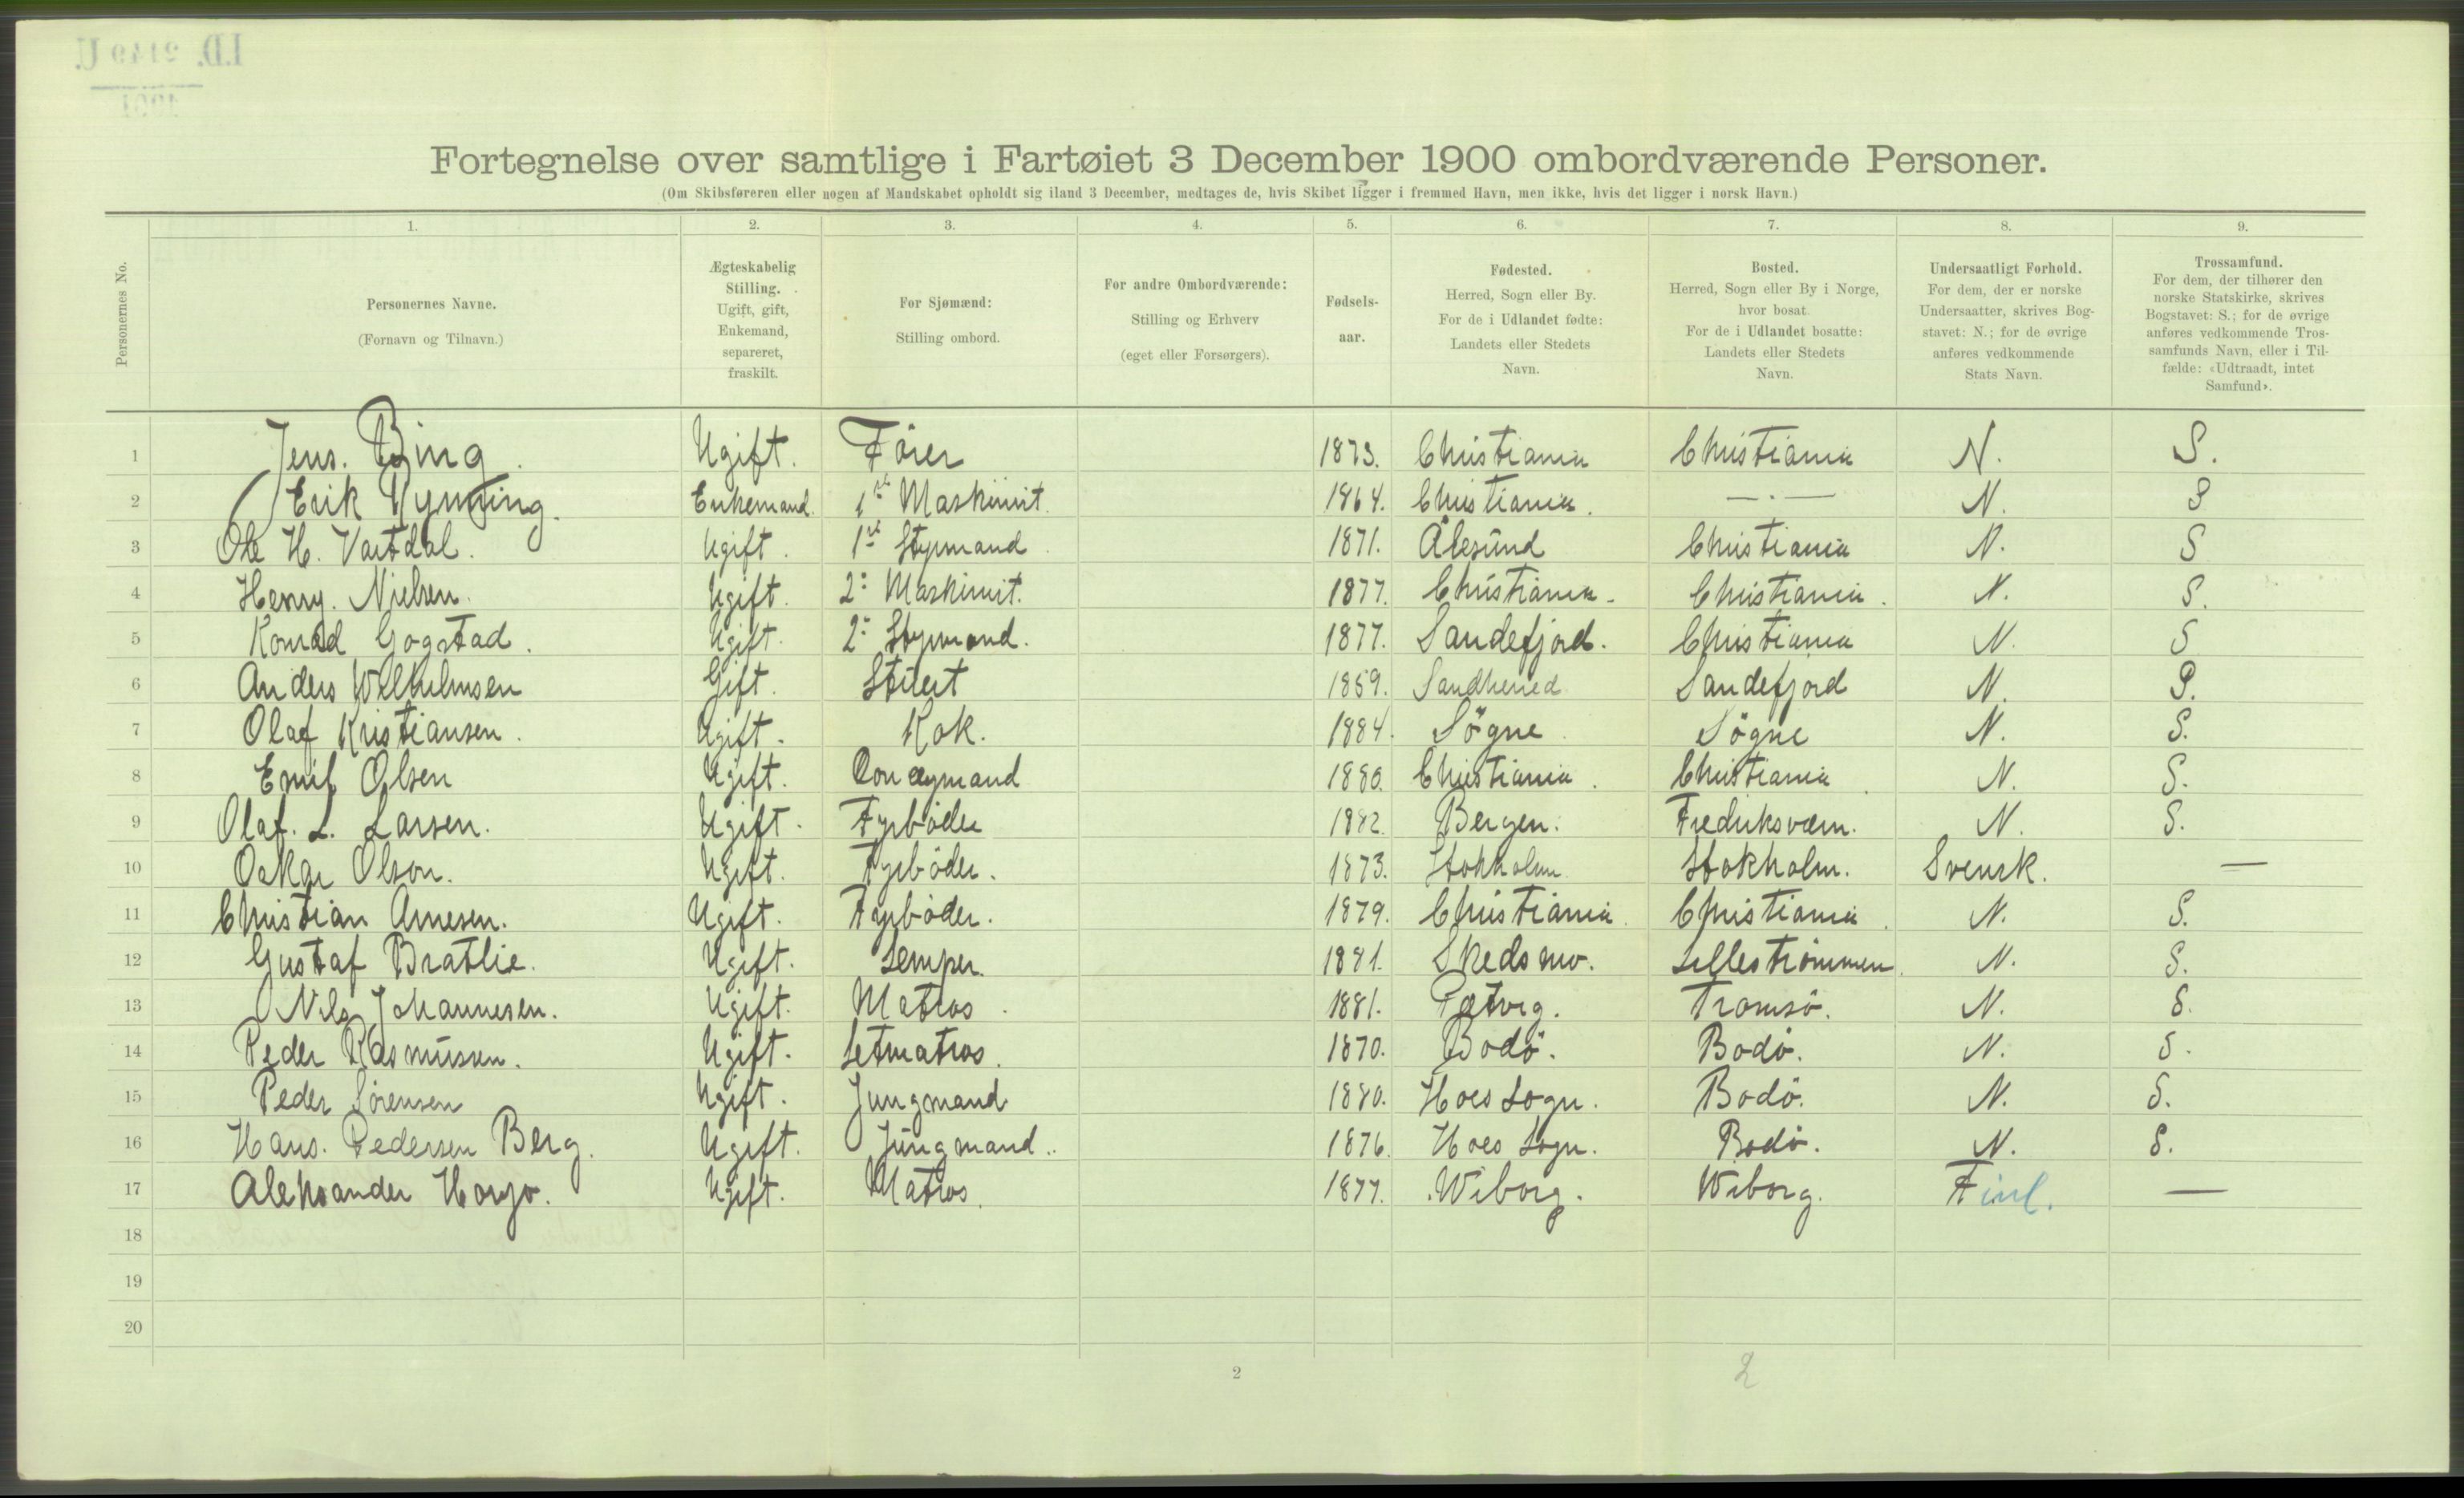 I.D. 2149 U.
1901
Fortegnelse over samtlige i Fartøiet 3 December 1900 ombordværende Personer.
(Om Skibsføreren eller nogen af Mandskabet opholdt sig iland 3 December, medtages de, hvis Skibet ligger i fremmed Havn, men ikke, hvis det ligger i norsk Havn.)
Personernes No.
1. 2. 3. 4. 5. 6. 7. 8. 9.
Personernes Navne.
(Fornavn og Tilnavn.)
Ægteskabelig
Stilling.
Ugift, gift,
Enkemand,
separeret,
fraskilt.
For Sjømænd:
Stilling ombord.
For andre Ombordværende:
Stilling og Erhverv
(eget eller Forsørgers).
Fødsels-
aar.
Fødested.
Herred, Sogn eller By.
For de i Udlandet fødte:
Landets eller Stedets
Navn.
Bosted.
Herred, Sogn eller By i Norge,
hvor bosat.
For de i Udlandet bosatte:
Landets eller Stedets
Navn.
Undersaatligt Forhold.
For dem, der er norske
Undersaatter, skrives Bog-
stavet: N.; for de øvrige
anføres vedkommende
Stats Navn.
Trossamfund.
For dem, der tilhører den
norske Statskirke, skrives
Bogstavet: S.; for de øvrige
anføres vedkommende Tros-
samfunds Navn, eller i Til-
fælde: «Udtraadt, intet
Samfund».
1 Jens. Bing. Ugift. Förer 1873. Christiania Christiania N. S.
2 Erik Rynning. Enkemand. 1ste Maskinist. 1864. Christiania. —·— N. S
3 Ole H. Vartdal. Ugift. 1ste Styrmand. 1871. Ålesund Christiania N. S
4 Henry. Nielsen. Ugift. 2: Maskinist. 1877. Christiania. Christiania. N. S.
5 Konrad Gogstad. Ugift. 2: Styrmand. 1877. Sandefjord. Christiania N. S
6 Anders Wilhelmsen Gift. Stüert 1859. Sandherred Sandefjord N. S.
7 Olaf Kristiansen. Ugift. Kok. 1884. Sögne Sögne N. S.
8 Emil Olsen Ugift. Donkeymand 1880. Christiania. Christiania. N. S.
9 Olaf. L. Larsen. Ugift. Fyrböder 1882. Bergen. Fredriksværn. N. S.
10 Oskar Olson. Ugift. Fyrböder. 1873. Stokholm Stokholm. Svensk. —
11 Christian Arnesen. Ugift. Fyrböder. 1879. Christiania. Christiania. N. S.
12 Gustaf Bratlie. Ugift. Lemper. 1881. Skedsmo. Lillestrømmen. N. S.
13 Nils Johannesen. Ugift. Matros. 1881. Tromsö. N. S.
14 Peder Rasmüssen. Ugift. Letmatros. 1870. Bodö. Bodö. N. S.
15 Peder Sörensen Ugift. Jungmand 1880. Hoes Sogn. Bodö. N. S.
16 Hans. Pedersen Berg. Ugift. Jüngmand. 1876. Hoes Sogn. Bodö. N. S.
17 Aleksander Ugift. Matros. 1877. Wiborg. Wiborg. Finl. —
18
19
20
2
2